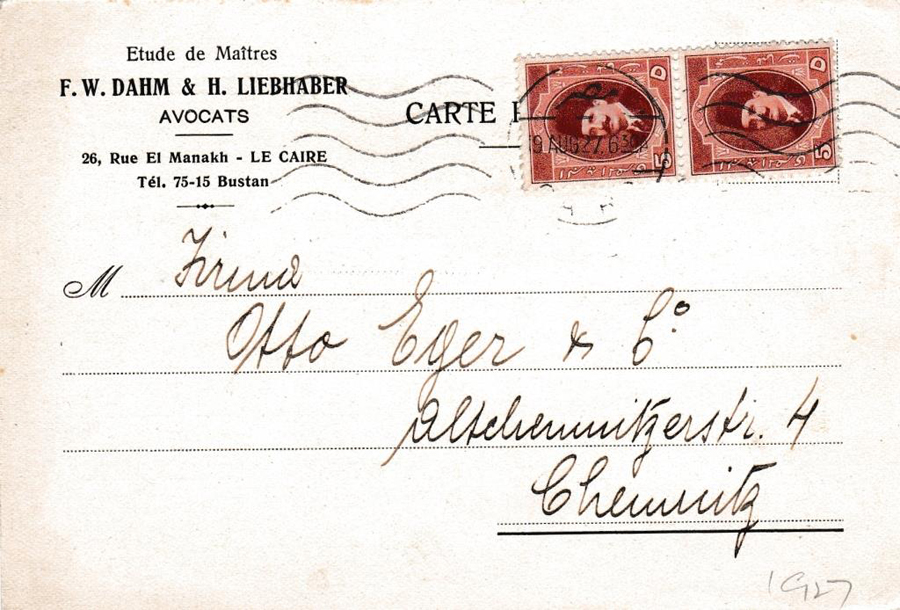 Etude de Maîtres
F. W. DAHM & H. LIEBHABER
AVOCATS
26, Rue El Manakh - LE CAIRE
Tél. 75-15 Bustan
CARTE P
9 AUG 27. 6 30
5
5
M Firma
Otto Eger & Co
Altchemnitzerstr. 4
Chemnitz
1927